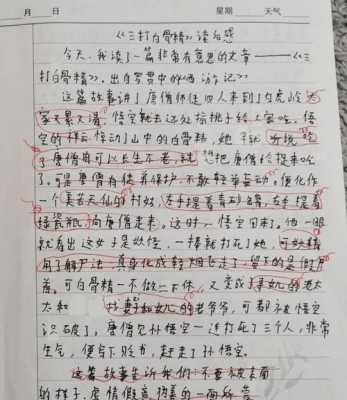 月 日 星期 天气
《三打白骨精》读后感
今天,我读了一篇非常有意思的文章——《三
打白骨精》,出自罗贯中的《西游记》
这篇故事讲了唐僧师徒四人来到了白虎岭
家又累又渴,悟空就去远处摘桃子给大家吃。悟
空的 惊动了山中的白骨精,她 听说吃
了唐僧肉可以长生不老,就想把唐僧给捉来吃
了。可是唐僧有徒弟保护,不敢轻举妄动。便化作
一个美若天仙的村姑,左手提着青砂罐,右手提着
绿瓷瓶,向唐僧走来。这时,悟空回来了。他一眼
就看出这女子是妖怪,一棒就打死了她,可妖精
用了解尸法,真身化成轻烟飞走了,留下的是假尸
首。可白骨精一不做二不休,又变成 的老太
太和 找妻子和女儿的老爷爷,可都被悟空
识破了。唐僧见孙悟空一连打死了三个人,非常
生气,便写下贬书,赶走了孙悟空。
这篇故事告诉我们:不要被表面
的样子,虚情假意,伪善的一面所